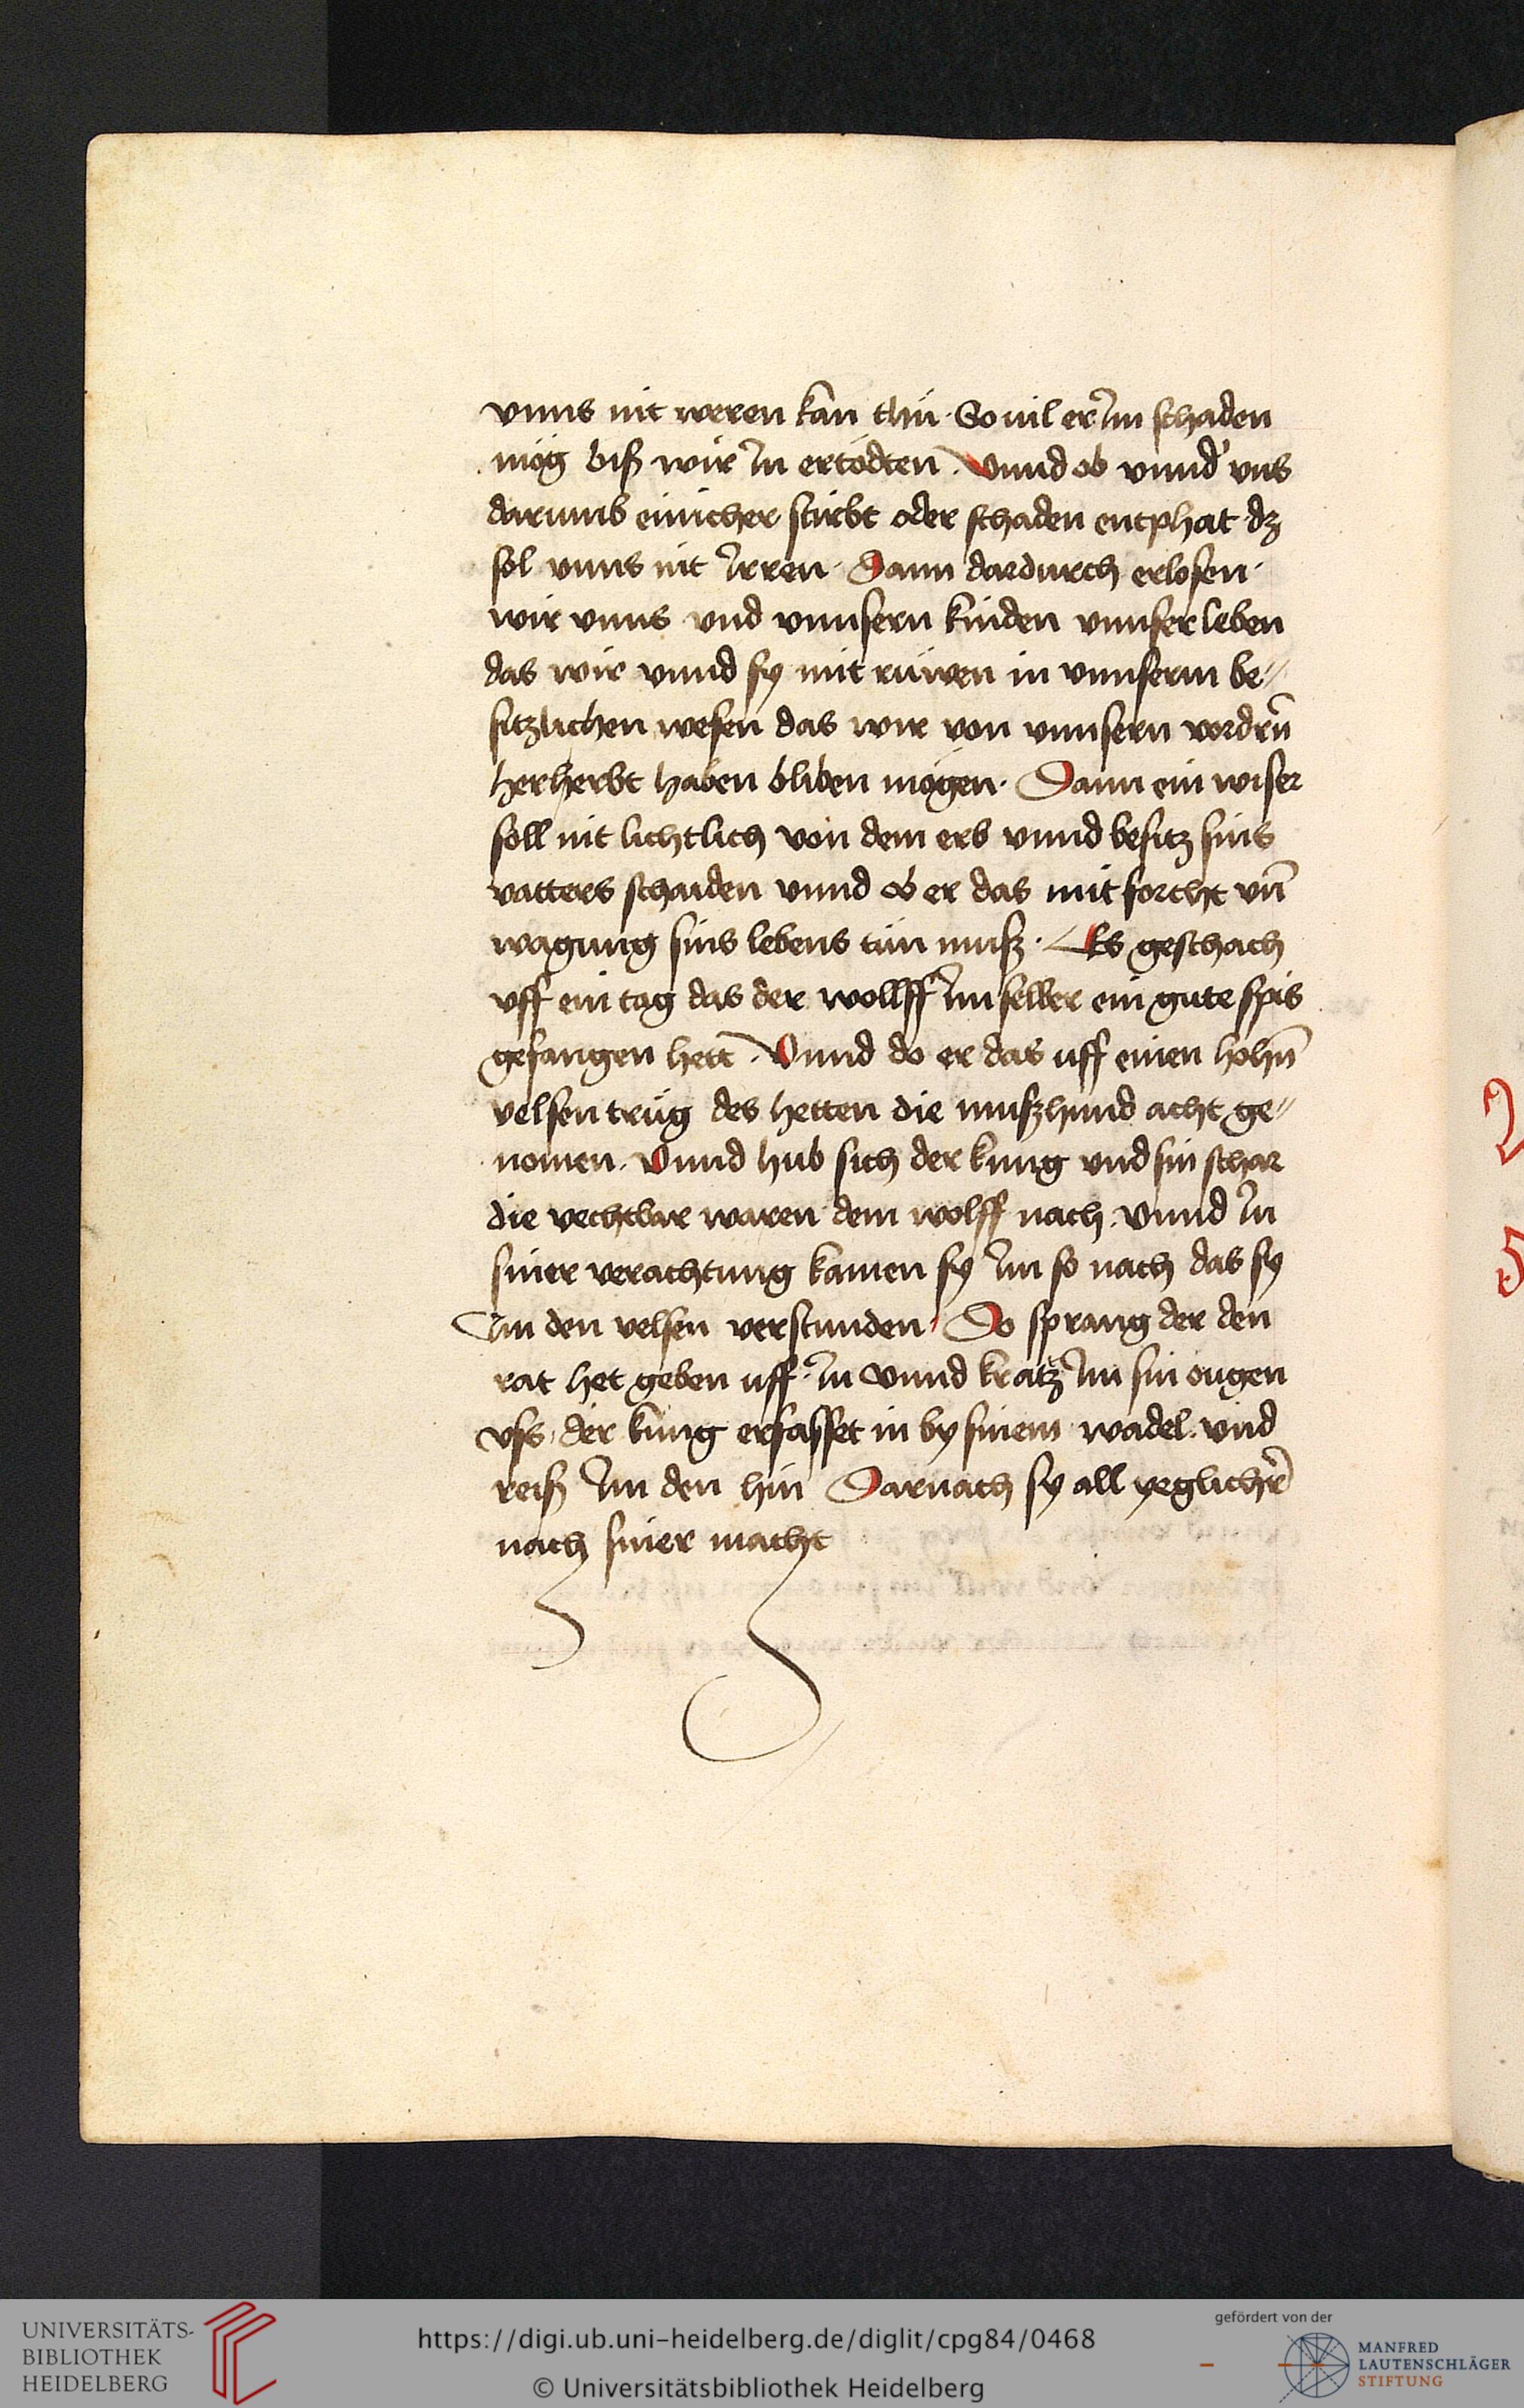 vnns nit weren kan thü · So uil er Im schaden
mög biß wir In ertödten · Vnnd ob vnnd' vns
darumb einicher stirbt oder schaden entphat dz
sol vnns nit Irren · Dann dardurch erlosen
wir vnns vnd vnnsern kinden vnnser leben
das wir vnnd sy mit rüwen in vnnserm be„
sitzlichen wesen das wir von vnnsern vordrn̄
herherbt haben bliben mögen · Dann ein wiser
soll nit lichtlich von dem erb vnnd besitz sins
vatters schaiden vnnd ob er das mit forcht vn̄
wagung sins lebens tün muß · Es geschach
vff ein tag das der wollff Im selber ein gute spis
gefangen hett · Vnnd do er das uff einen hohn̄
velsen trüg des hetten die mußhund acht ge„
nomen · Vnnd hub sich der kung vnd sin schar
die vechtbar waren dem wolff nach vnnd In
siner verachtung kamen sy Im so nach das sy
Im den velsen verstunden Do sprang der den
rat het geben uff In vnnd kratzt Im sin ougen
vss · der kung erfasset in by sinem wadel vnd
reiß Im den hin Darnach sy all yeglichr̄
nach siner macht
UNIVERSITÄTS-
BIBLIOTHEK
HEIDELBERG
https://digi.ub.uni-heidelberg.de/diglit/cpg84/0468
© Universitätsbibliothek Heidelberg
gefördert von der
MANFRED
LAUTENSCHLÄGER
STIFTUNG